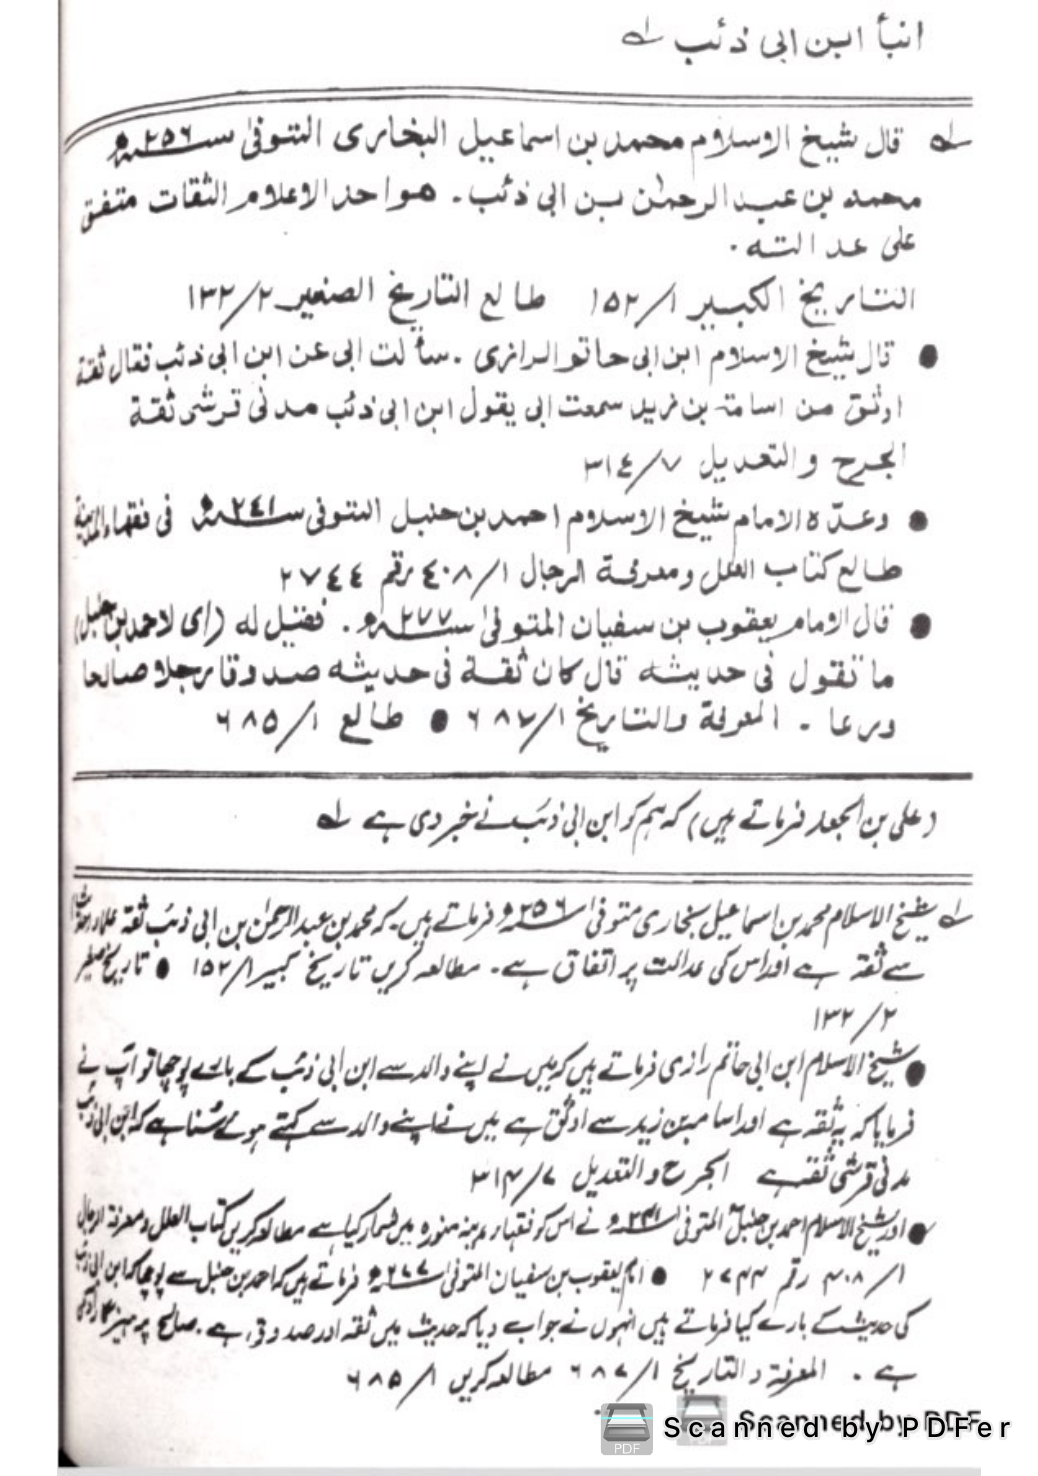 انبأ ابن ابی ذئب ـلـه
ـلـه قال شیخ الاسلام محمد بن اسماعیل البخاری المتوفیٰ سـ٢٥٦ـنہ
محمد بن عبد الرحمٰن بن ابی ذئب۔ هو احد الاعلام الثقات متفق
علی عدالته۔
التاریخ الکبیر ١/١٥٢ طالع التاریخ الصغیر ٢/١٣٢
● قال شیخ الاسلام ابن ابی حاتم الرازی۔ سألت ابی عن ابن ابی ذئب فقال ثقة
اوثق من اسامة بن زید سمعت ابی یقول ابن ابی ذئب مدنی قرشی ثقة
الجرح والتعدیل ٧/٣١٤
● وعدّہ الامام شیخ الاسلام احمد بن حنبل المتوفی سـ٢٤١ـنہ فی فقهاء المدینة
طالع کتاب العلل ومعرفة الرجال ١/٤٠٨ رقم ٢٧٤٤
● قال الامام یعقوب بن سفیان المتوفیٰ سـ٢٧٧ـنہ۔ فقیل له (ای لاحمد بن حنبل)
ما تقول فی حدیثه قال کان ثقة فی حدیثه صدوقا رجلا صالحا
ورعا۔ المعرفة والتاریخ ١/٦٨٧ ● طالع ١/٦٨٥
(علی بن الجعد فرماتے ہیں) کہ ہم کو ابن ابی ذئب نے خبر دی ہے ـلـه
ـلـه شیخ الاسلام محمد بن اسماعیل بخاری متوفیٰ سـ٢٥٦ـنہ فرماتے ہیں۔ کہ محمد بن عبد الرحمٰن بن ابی ذئب ثقہ علماء
سے ثقہ ہے اور اس کی عدالت پر اتفاق ہے۔ مطالعہ کریں تاریخ کبیر ١/١٥٢ ● تاریخ صغیر
٢/١٣٢
● شیخ الاسلام ابن ابی حاتم رازی فرماتے ہیں کہ میں نے اپنے والد سے ابن ابی ذئب کے بارے پوچھا تو آپ نے
فرمایا کہ یہ ثقہ ہے اور اسامہ بن زید سے اوثق ہے میں نے اپنے والد سے کہتے ہوئے سنا ہے کہ ابن ابی ذئب
مدنی قرشی ثقہ ہے الجرح والتعدیل ٧/٣١٤
● اور شیخ الاسلام احمد بن حنبلؒ المتوفی سـ٢٤١ـنہ نے اس کو فقہاء مدینہ منورہ میں شمار کیا ہے مطالعہ کریں کتاب العلل ومعرفة الرجال
١/٤٠٨ رقم ٢٧٤٤ ● امام یعقوب بن سفیان المتوفیٰ سـ٢٧٧ـنہ فرماتے ہیں کہ احمد بن حنبل سے پوچھا کہ ابن ابی ذئب
کی حدیث کے بارے کیا فرماتے ہیں انہوں نے جواب دیا کہ حدیث میں ثقہ اور صدوق ہے۔ صالح پرہیزگار آدمی
ہے۔ المعرفة والتاریخ ١/٦٨٧ مطالعہ کریں ١/٦٨٥
Scanned by PDFer